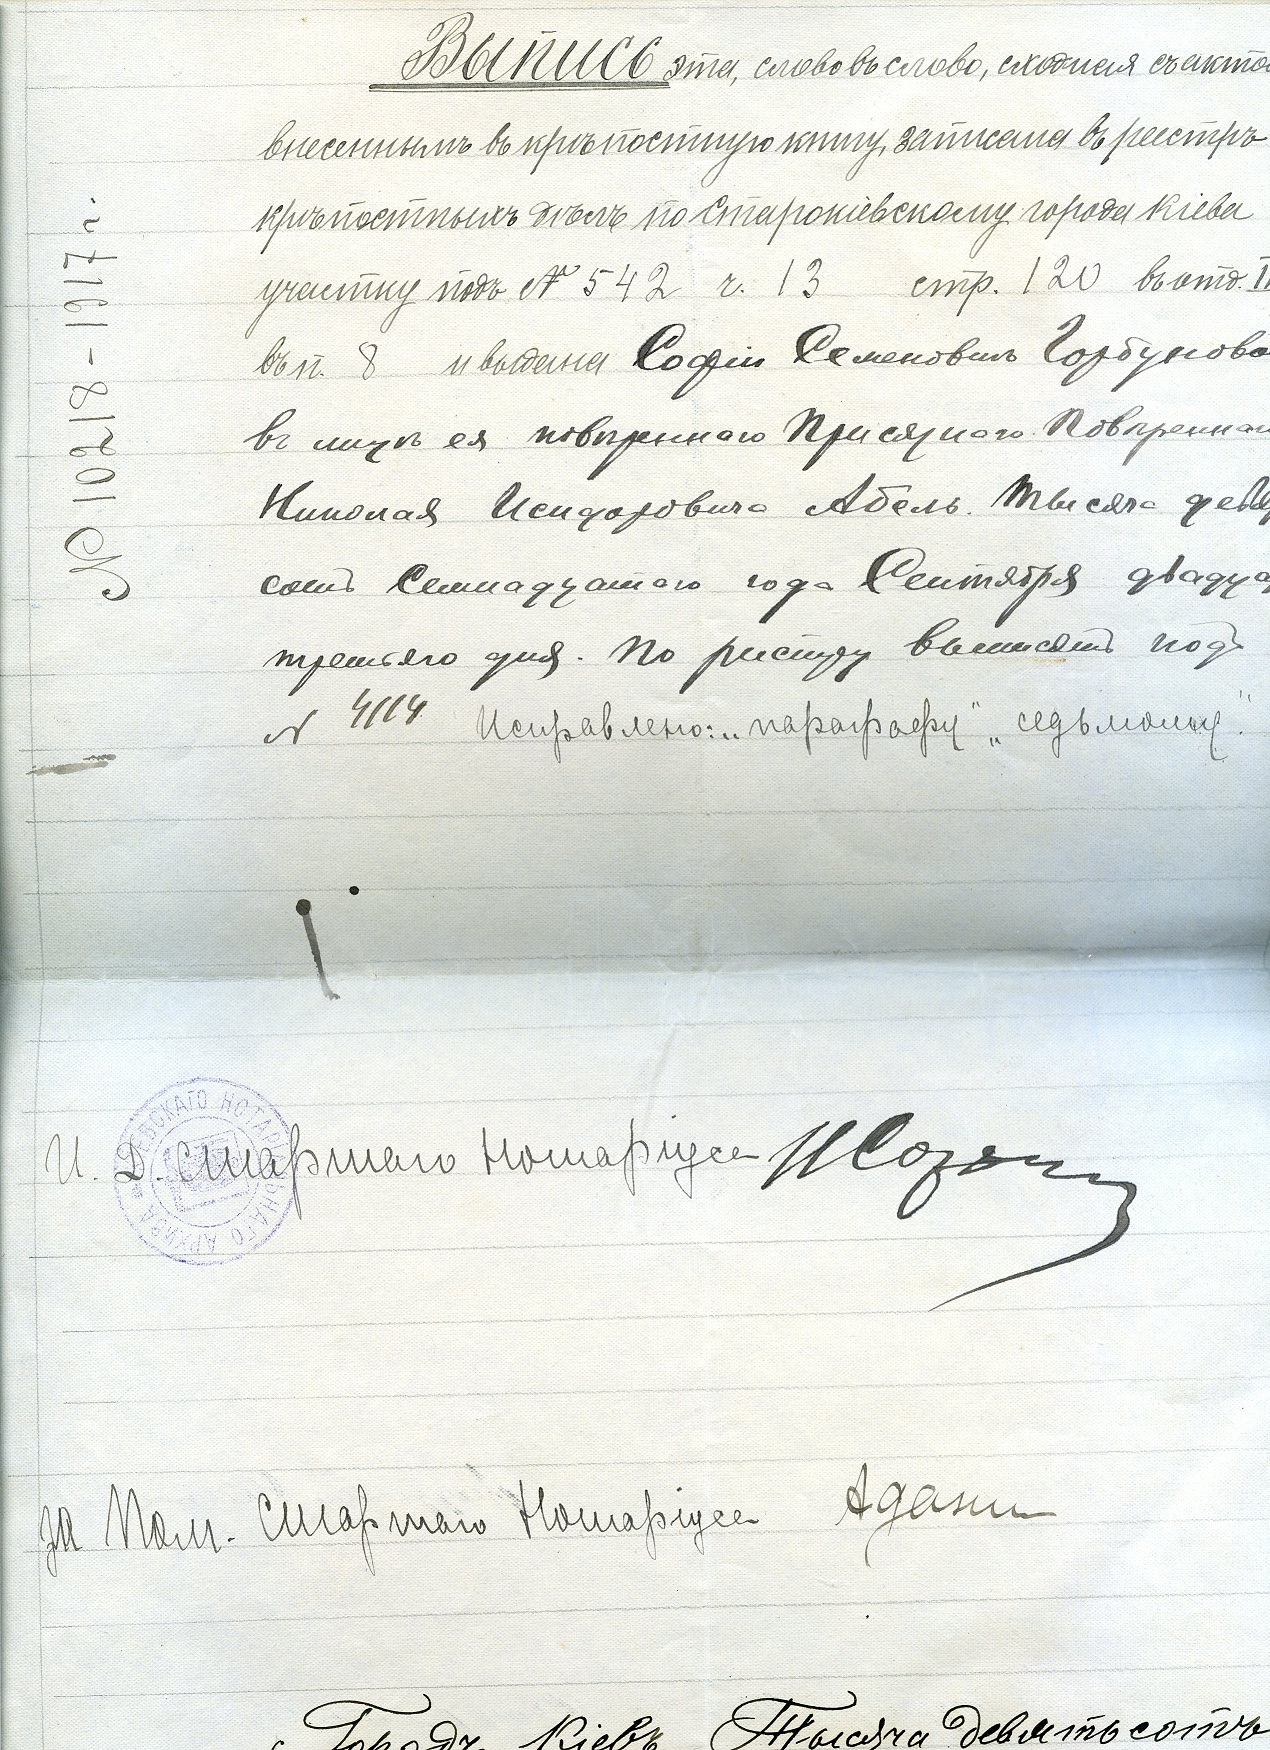 Выпись эта, слово въ слово, сходная съ акто
внесеннымъ въ крѣпостную книгу, записана въ реестръ
крѣпостныхъ дѣлъ по Старокіевскому города Кіева
участку подъ № 542 ч. 13 стр. 120 въ отд. I
въ п. 8 и выдана Софіи Семеновнѣ Горбуново
въ лицѣ ея повѣреннаго Присяжнаго Повѣреннаг
Николая Исидоровича Абель. Тысяча девя
сотъ семнадцатаго года Сентября двадца
третьяго дня. По реестру выписей подъ
№ 4114 Исправлено: „параграфу" „седьмому".
№ 10218-1917 г.
КІЕВСКАГО НОТАРІАЛЬНАГО АРХИВА
И. Д. Старшаго Нотаріуса
за Пом. Старшаго Нотаріуса
Городъ Кіевъ Тысяча девятьсотъ